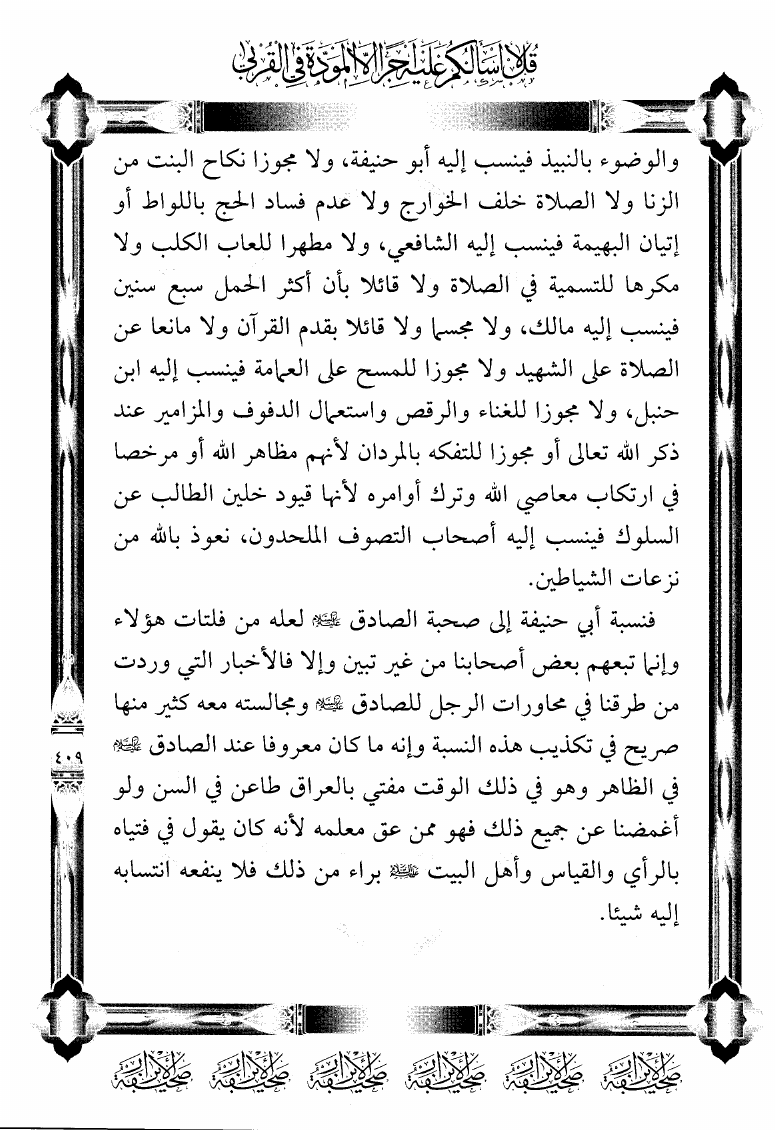 قل لا أسألكم عليه أجرا إلا المودة في القربى
والوضوء بالنبيذ فينسب إليه أبو حنيفة، ولا مجوزا نكاح البنت من
الزنا ولا الصلاة خلف الخوارج ولا عدم فساد الحج باللواط أو
إتيان البهيمة فينسب إليه الشافعي، ولا مطهرا للعاب الكلب ولا
مكرها للتسمية في الصلاة ولا قائلا بأن أكثر الحمل سبع سنين
فينسب إليه مالك، ولا مجسما ولا قائلا بقدم القرآن ولا مانعا عن
الصلاة على الشهيد ولا مجوزا للمسح على العمامة فينسب إليه ابن
حنبل، ولا مجوزا للغناء والرقص واستعمال الدفوف والمزامير عند
ذكر الله تعالى أو مجوزا للتفكه بالمردان لأنهم مظاهر الله أو مرخصا
في ارتكاب معاصي الله وترك أوامره لأنها قيود خلين الطالب عن
السلوك فينسب إليه أصحاب التصوف الملحدون، نعوذ بالله من
نزعات الشياطين.
فنسبة أبي حنيفة إلى صحبة الصادق عليه السلام لعله من فلتات هؤلاء
وإنما تبعهم بعض أصحابنا من غير تبين وإلا فالأخبار التي وردت
من طرقنا في محاورات الرجل للصادق عليه السلام ومجالسته معه كثير منها
صريح في تكذيب هذه النسبة وإنه ما كان معروفا عند الصادق عليه السلام
في الظاهر وهو في ذلك الوقت مفتي بالعراق طاعن في السن ولو
أغمضنا عن جميع ذلك فهو ممن عق معلمه لأنه كان يقول في فتياه
بالرأي والقياس وأهل البيت عليهم السلام براء من ذلك فلا ينفعه انتسابه
إليه شيئا.
٤٠٩
صحيفة الأبرار صحيفة الأبرار صحيفة الأبرار صحيفة الأبرار صحيفة الأبرار صحيفة الأبرار